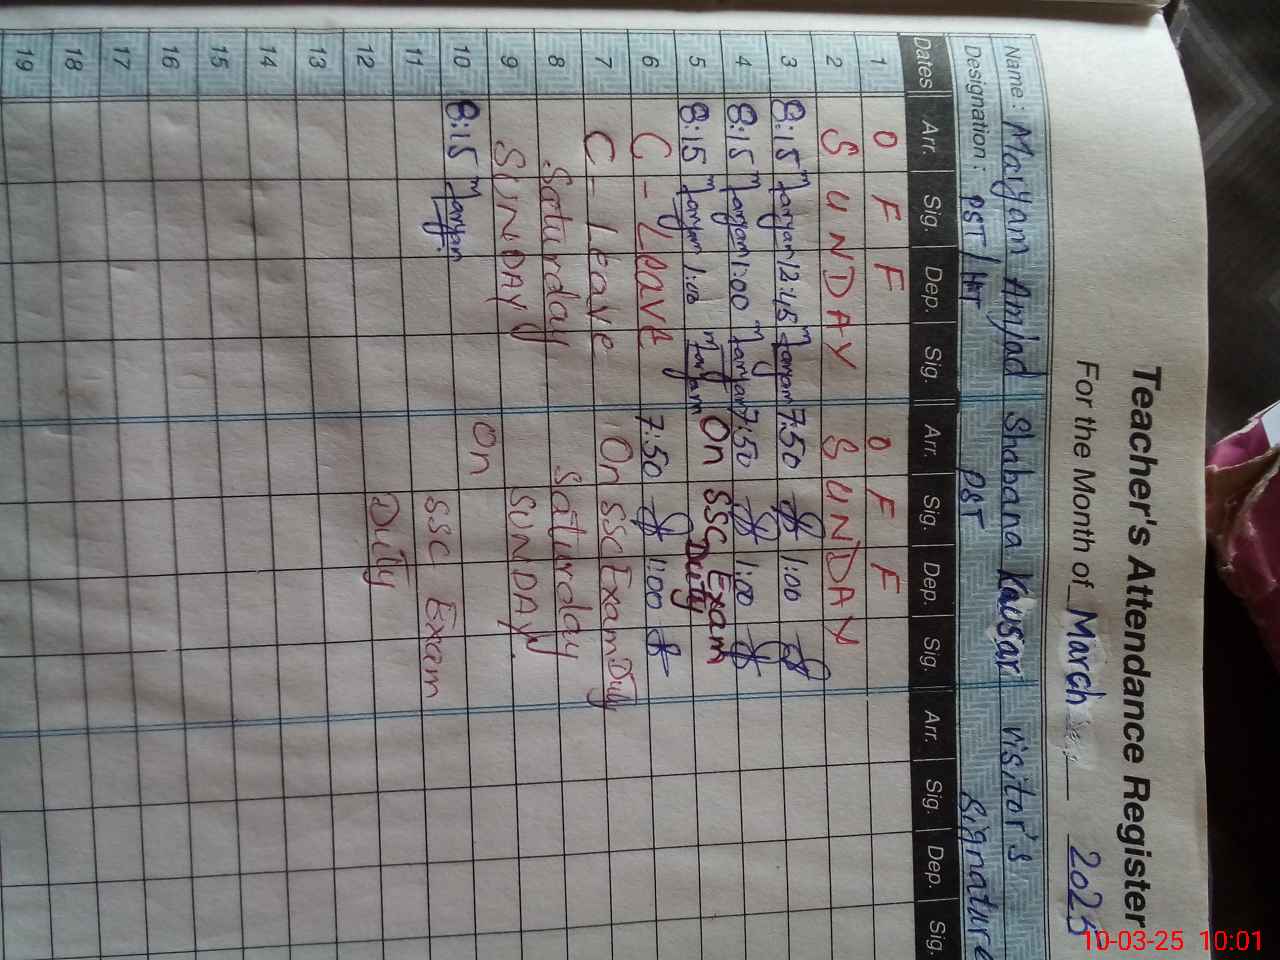 Teacher's Attendance Register
For the Month of March 2025
Name: Maryam Amjad Shabana Kausar visitor's
Designation: PST / HT PST Signature
Dates Arr. Sig. Dep. Sig. Arr. Sig. Dep. Sig. Arr. Sig. Dep. Sig.
1 O F F O F F
2 S U N D A Y S U N D A Y
3 8:15 Maryam 12:45 Maryam 7:50 1:00
4 8:15 Maryam 1:00 Maryam 7:50 1:00
5 8:15 Maryam 1:00 Maryam On SSC Exam Duty
6 C - Leave 7:50 1:00
7 C - Leave On SSC Exam Duty
8 Saturday Saturday
9 SUNDAY SUNDAY
10 8:15 Maryam On
11 SSC Exam
12 Duty
13
14
15
16
17
18
19
10-03-25 10:01